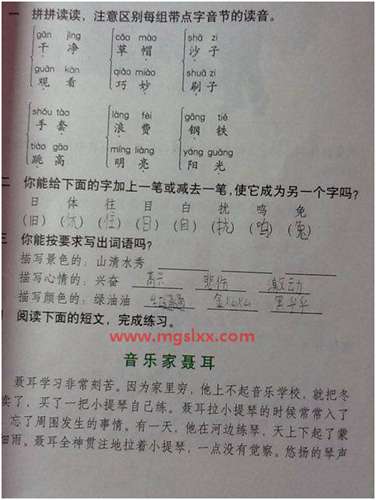 一 拼拼读读，注意区别每组带点字音节的读音。
gān jìng cǎo mào shā zi
干 净 草 帽 沙 子
guān kàn qiǎo miào shuā zi
观 看 巧 妙 刷 子
shǒu tào làng fèi gāng tiě
手 套 浪 费 钢 铁
tiào gāo míng liàng yáng guāng
跳 高 明 亮 阳 光
二 你能给下面的字加上一笔或减去一笔，使它成为另一个字吗？
日 体 往 目 白 扰 鸣 免
(旧) ( ) (住) (日) (自) (抗) (鸣) (兔)
三 你能按要求写出词语吗？
描写景色的：山清水秀
描写心情的：兴奋 高兴 悲伤 激动
描写颜色的：绿油油 金灿灿 黑乎乎
阅读下面的短文，完成练习。
www.mgslxx.com
音乐家聂耳
聂耳学习非常刻苦。因为家里穷，他上不起音乐学校，就把冬
卖了，买了一把小提琴自己练。聂耳拉小提琴的时候常常入了
忘了周围发生的事情。有一天，他在河边练琴，天上下起了蒙
细雨。聂耳全神贯注地拉着小提琴，一点没有觉察。悠扬的琴声